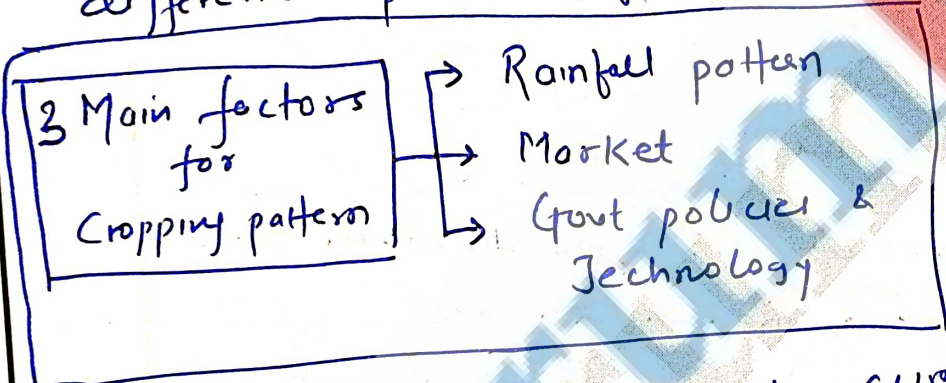 different
3 Main factors
for
Cropping pattern
Rainfall pattern
Market
Govt policies &
Technology